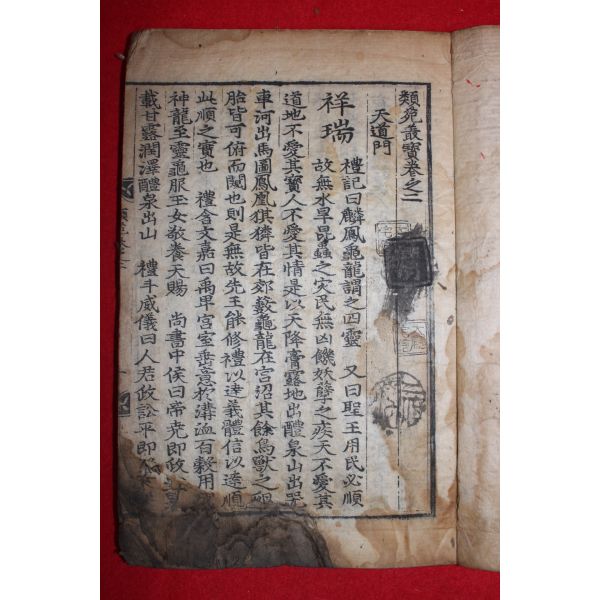 類苑叢寶卷之二
天道門
祥瑞
禮記曰麟鳳龜龍謂之四靈 又曰聖王用民必順
故無水旱昆蟲之灾民無凶饑妖孽之疾天不愛其
道地不愛其寶人不愛其情是以天降膏露地出醴泉山出器
車河出馬圖鳳凰猉獜皆在郊藪龜龍在宫沼其餘鳥獸之卵
胎皆可俯而闚也則是無故先王能修禮以達義體信以達順
此順之實也 禮含文嘉曰禹卑宫室垂意於溝洫百穀用
神龍至靈龜服玉女敬養天賜 尚書中侯曰帝堯即政
載甘露潤澤醴泉出山 禮斗威儀曰人君政訟平即